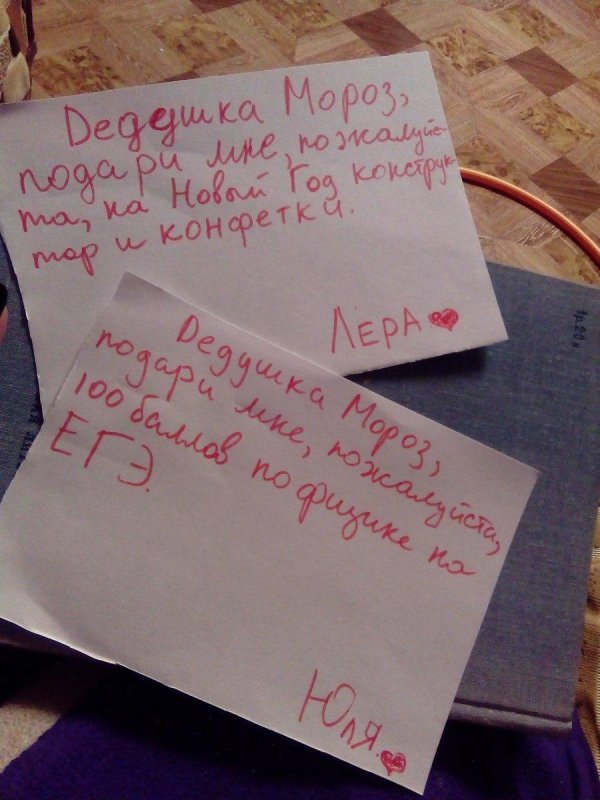 Дедушка Мороз,
подари мне, пожалуйс-
та, на Новый Год конструк-
тор и конфетки.
ЛЕРА
Дедушка Мороз,
подари мне, пожалуйста,
100 баллов по физике на
ЕГЭ.
Юля